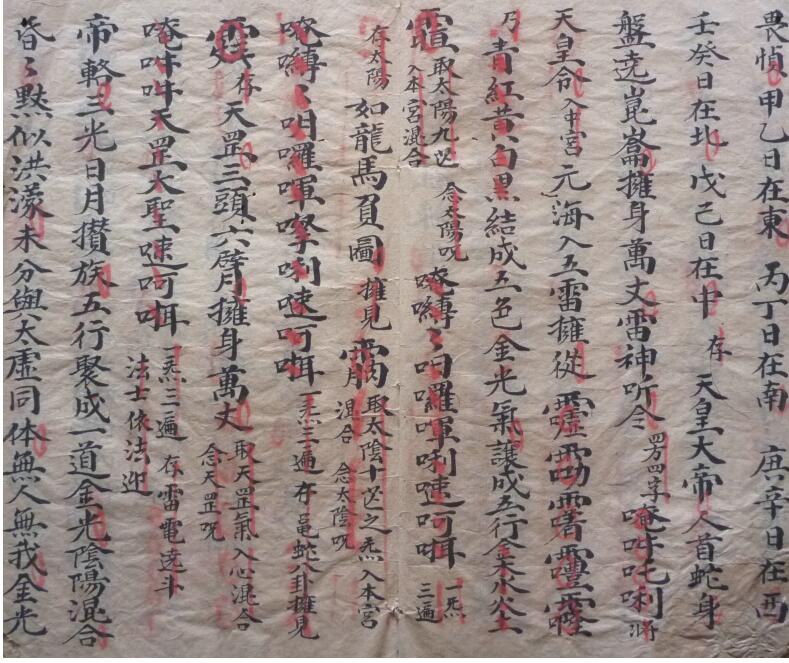 畏慎甲乙日在東 丙丁日在南 庚辛日在西
壬癸日在北 戊己日在中 存 天皇大帝人首蛇身
盤遶崑崙擁身萬丈雷神听令 四方四字 唵吽吒唎 將
天皇令 入中宮 元海入五雷擁從
乃青紅黃白黑結成五色金光氣讓成五行金木水火土
取太陽九炁入本宮混合 念太陽咒 唵縛〻日羅嗶唎速呵㖿 一炁三遍
存太陽 如龍馬負圖 擁見 取太陰十炁之炁入本宮混合 念太陰咒
唵縛〻日羅嗶唎速呵㖿 一炁三遍 存黽蛇八卦擁見
存 天罡三頭六臂擁身萬丈 取天罡氣入心混合 念天罡咒
唵吽吽天罡大聖速呵㖿 炁三遍 存雷電遶斗 法士依法迎
帝輅三光日月攢族五行聚成一道金光陰陽混合
昏〻黙似洪濛未分與太虛同体無人無我金光